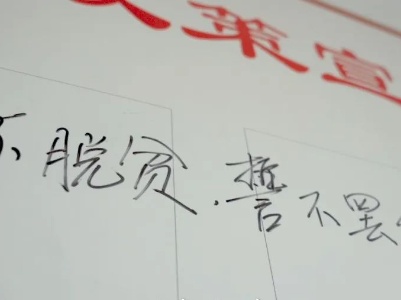 策宣
不脱贫.誓不罢